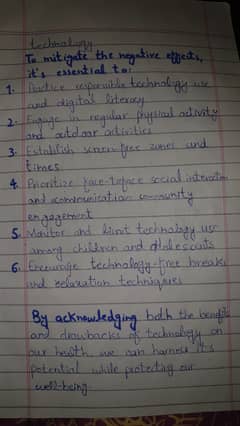 technology
To mitigate the negative effects,
it's essential to:
1. Practice responsible technology use
and digital literacy
2. Engage in regular physical activity
and outdoor activities
3. Establish screen-free zones and
times
4. Prioritize face-to-face social interaction
and communication community
engagement
5. Monitor and limit technology use
among children and adolescents
6. Encourage technology-free breaks
and relaxation techniques
By acknowledging both the benefits
and drawbacks of technology on
our health, we can harness it's
potential while protecting our
well-being.